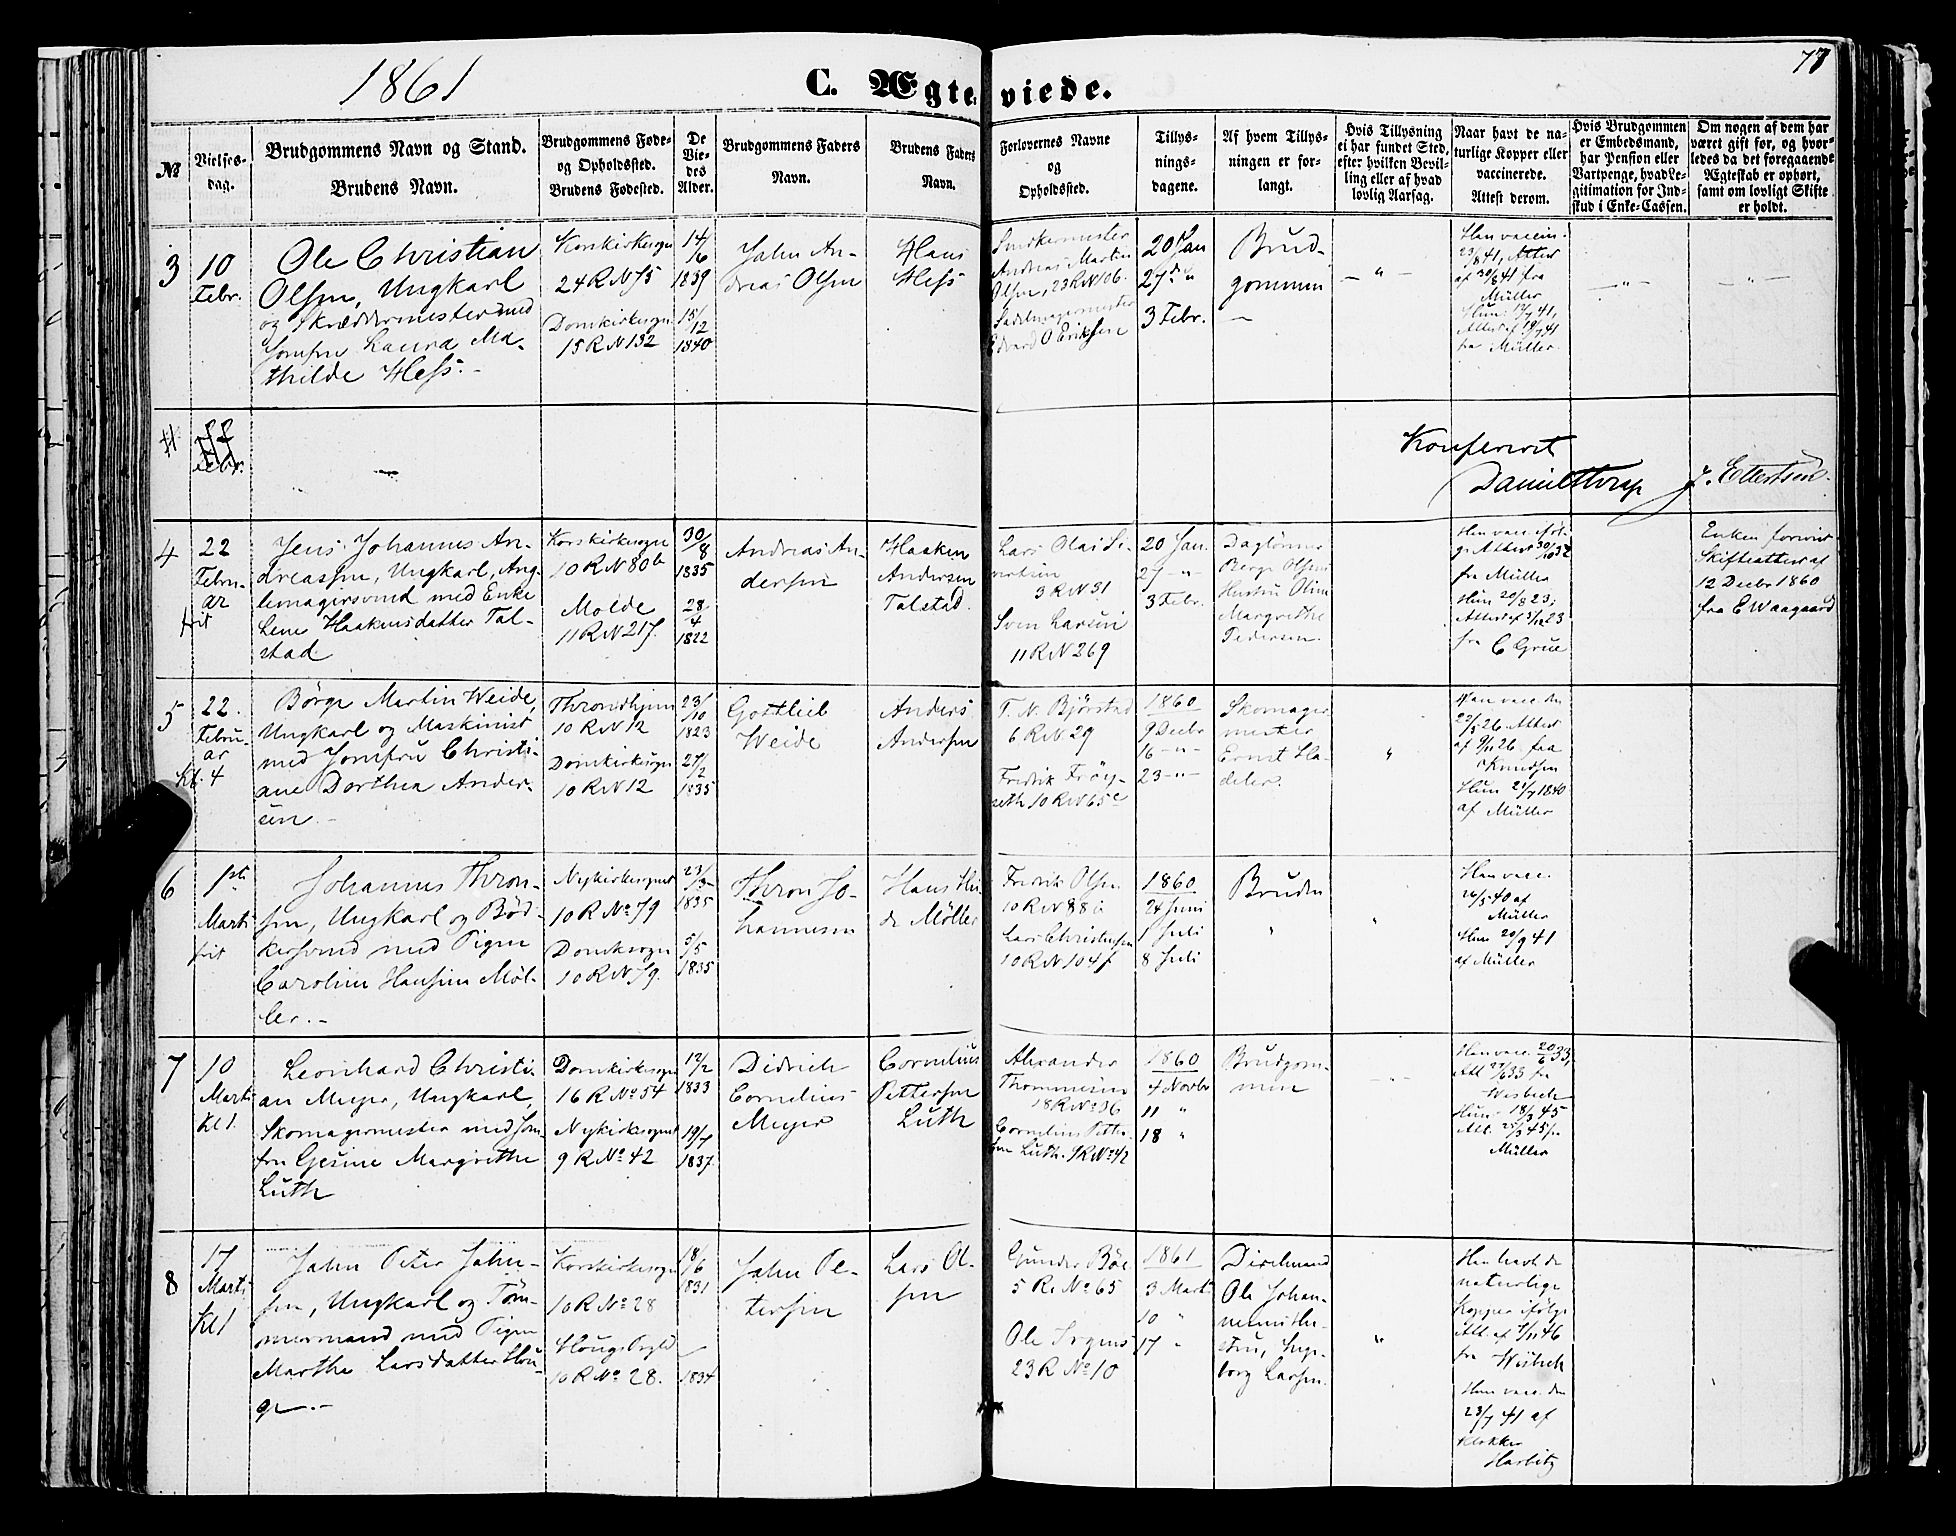 1861
C. Ægteviede.
77
№
Vielses-
dag.
Brudgommens Navn og Stand.
Brudens Navn.
Brudgommens Føde-
og Opholdssted.
Brudens Fødested.
De
Vie-
des
Alder.
Brudgommens Faders
Navn.
Brudens Faders
Navn.
Forlovernes Navne
og
Opholdssted.
Tillys-
nings-
dagene.
Af hvem Tillys-
ningen er for-
langt.
Hvis Tillysning
ei har fundet Sted,
efter hvilken Bevil-
ling eller af hvad
lovlig Aarsag.
Naar havt de na-
turlige Kopper eller
vaccinerede.
Attest derom.
Hvis Brudgommen
er Embedsmand,
har Pension eller
Vartpenge, hvad Le-
gitimation for Ind-
skud i Enke-Cassen.
Om nogen af dem har
været gift før, og hvor-
ledes da det foregaaende
Ægteskab er ophørt,
samt om lovligt Skifte
er holdt.
3
10
Febr.
Ole Christian
Olsen, Ungkarl
og Skræddermester med
Jomfru Laura Ma-
thilde Hess.
Korskirkesogn
24 R N 75
Domkirkesogn
15 R N 132
14/6
1839
15/12
1840
John An-
dreas Olsen
Hans
Hess
Snedkermester
Andreas Martin
Olsen, 23 R N 106.
Sadelmagermester
Edvard O Eriksen
20 Jan
27 d "
3 Febr.
Brud-
gommen
— " —
Han vaccin.
23/8 41, Attest
af 30/8 41 fra
Müller
Hun: 12/7 41,
Attest af 19/7 41
fra Müller.
— " —
— " —
Konfereret
Daniel Strap J. Ellertsen.
4
22
Febru-
ar
frit
Jens Johannes An-
dreassen, Ungkarl, Ang-
lemagersvend med Enke
Lene Haakensdatter Tal-
stad
Korskirkesogn
10 R N 80b
Molde
11 R N 217.
30/8
1835
28/4
1822
Andreas An-
dersen
Haaken
Andersen
Talstad.
Lars Olai Si-
vertsen
3 R N 31
Sven Larsen
11 R N 269
20 Jan.
27 — " —
3 Febr.
Daglønner
Børge Olsens
Hustru Oline
Margrethe
Pedersen.
Han vacc. iføl-
ge Attest
fra Müller
Hun 20/8 23;
Attest af
fra C Grüe
Enken foreviist
Skifteattest af
12 Decbr 1860
fra E Waagaard
5
22.
Febru-
ar
Kl. 4
Børge Martin Weide,
Ungkarl og Maskinist
med Jomfru Christi-
ane Dorthea Ander-
sen.
Throndhjem
10 R N 12
Domkirkesogn
10 R N 12
23/10
1823
27/2
1835
Gottlieb
Weide
Anders
Andersen
T. N. Bjørstad
6 R N 29
Fredrik Frøy-
seth 10 R N 65c
1860
9 Decbr
16 — " —
23 — " —
Skomager
mester
Ernst Ha-
deler.
"
Han vacc. den
Attest
fra
Knudsen
Hun 1840
af Müller
6
1ste
Marts
frit
Johannes Thron-
sen, Ungkarl og Bød-
kersvend med Pigen
Caroline Hansine Møl-
ler.
Nykirkesognet
10 R No 79
Domk.sogn
10 R N 79.
23/3
1835
5/5
1835
Thron Jo-
hannesen
Hans Hei-
de Møller
Fredrik Olsen
10 R N 88
Lars Christensen
10 R N 104
1860
24 Juni
1 Juli
8 Juli
Bruden
"
"
Han vacc.
26/5 40 af
Müller
Hun 20/9 41
af Müller
7
10
Marts
Kl 1.
Leonhard Christi-
an Meyer, Ungkarl,
Skomagermester med Jom-
fru Gesine Margrethe
Luth
Domkirkesogn
16 R No 54
Nykirkesognet
9 R No 42
12/2
1833
19/7
1837.
Didrich
Cornelius
Meyer
Cornelius
Pettersen
Luth
Alexander
Thommesen
18 R No 36
Cornelius Petter-
sen Luth. 9 R No 42
1860
4 Novbr
11 "
18 "
Brudgom-
men
— " —
Han vacc. 20/6 33,
Att 33 fra
Wesbech
Hun 18/3 45
Att. 25/3 45 fra
Müller
8
17
Marts
Kl 1
John Peter John-
sen, Ungkarl og Tøm-
mermand med Pigen
Marthe Larsdatter Hou-
ge.
Korskirkesogn
10 R No 28
Hougs Prgld
10 R No 28.
18/6
1831
1834
John Pe-
tersen
Lars Ol-
sen
Gunder Bøe
5 R. No 65
Ole Irgens
23 R No 10
1861
3 Marts
10 "
17 "
Ole Johan-
nesens Hu-
stru, Inge-
borg Larsen.
"
Han havt de
naturlige
Kopper ifølge
Att. af 46
fra Wisbech
Hun vacc. den
23/7 41 af
Klokker
Harbitz